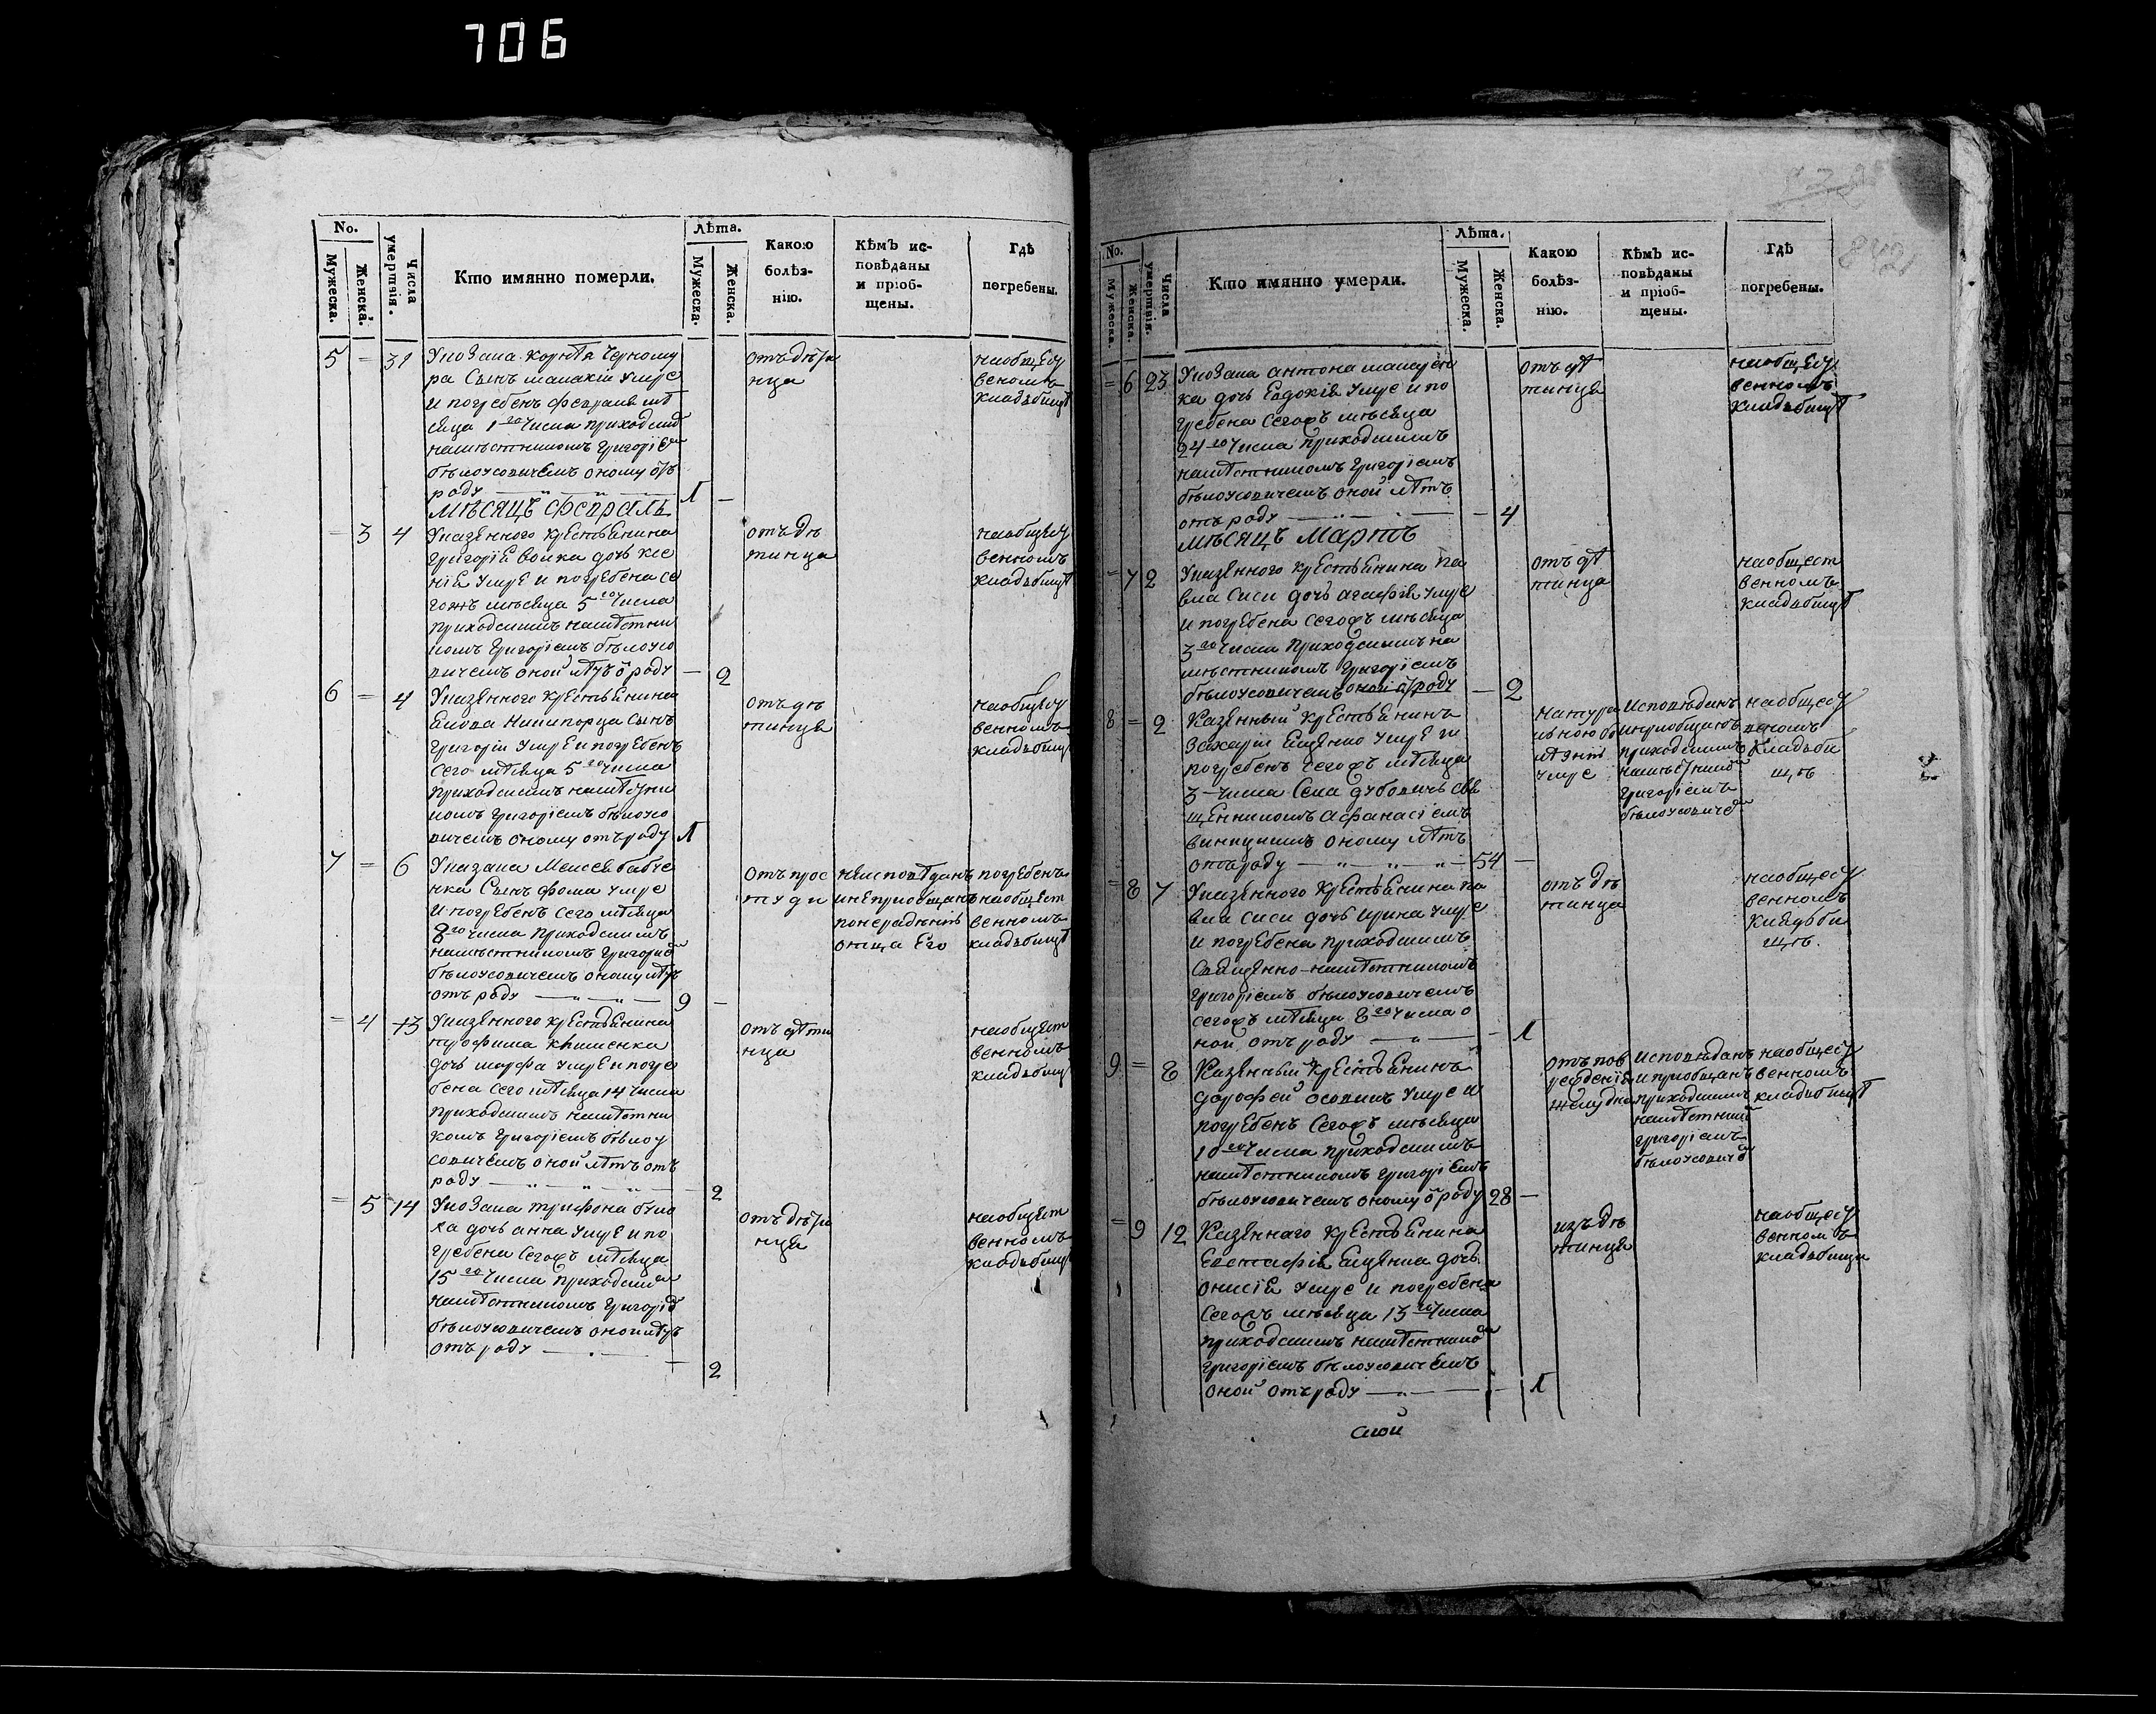 706
No.
Мужеска.
Женска.
Числа умертвія.
Кто имянно померли.
Лѣта.
Мужеска.
Женска.
Какою болѣз-
нію.
Кѣмъ ис-
повѣданы
и пріоб-
щены.
Гдѣ
погребены.
5 = 31 Указана Чорному
ра Сынъ малахій умре
и погребенъ февраля мѣ
сяца 1го Числа приходскимъ
намѣстникомъ Григоріемъ
бѣлоусовичемъ оному ѿ
роду 1 —
отъ дѣти
нца
наобщест
веномъ
кладьбищѣ
мѣсяцъ Февраль
= 3 4 У казенного крестьянина
Григорія война дочь ксе
нія умре и погребена се
гожъ мѣсяца 5го Числа
приходскимъ намѣстни
комъ Григоріемъ бѣлоусо
вичемъ оной лѣтъ ѿ роду — 2
отъ дѣ
тинца
наобщест
венномъ
кладьбищѣ
6 = 4 У казенного крестьянина
Никипорца сынъ
Григорій умре и погребенъ
сего мѣсяца 5го Числа
приходскимъ намѣстни
комъ Григоріемъ бѣлоусо
вичемъ оному отъ роду 1
отъ дѣ
тинця
наобщест
венномъ
кладьбищѣ
7 = 6 Указана Моисея бабче
нка Сынъ фома умре
и погребенъ сего мѣсяца
8го числа приходскимъ
намѣстникомъ Григоріемъ
бѣлоусовичемъ оному лѣтъ
отъ роду 9 —
отъ прос
туди
неисповѣданъ
инепріобщанъ
понерадѣнію
отца Его
погребенъ
наобщест
венномъ
кладьбищѣ
= 4 13 У казенного крестьянина
дочь марфа умре и погре
бена сего мѣсяца 14 Числа
приходскимъ намѣстни
комъ Григоріемъ бѣлоу
совичемъ оной лѣтъ отъ
роду — 2
отъ дѣти
нца
наобщест
венномъ
кладьбищѣ
= 5 14 трифона
ка дочь анна умре и по
гребена сегожъ мѣсяца
15го Числа приходскимъ
намѣстникомъ Григоріемъ
бѣлоусовичемъ оной лѣтъ
отъ роду — 2
отъ дѣти
нця
наобщест
венномъ
кладьбищѣ
842
No.
Мужеска.
Женска.
Числа умертвія.
Кто имянно умерли.
Лѣта.
Мужеска.
Женска.
Какою
болѣз-
нію.
Кѣмъ ис-
повѣданы
и пріоб-
щены.
Гдѣ
погребены.
= 6 23 антона
ка дочь Евдокія умре и по
гребена сегожъ мѣсяца
24го Числа приходскимъ
намѣстникомъ Григоріемъ
бѣлоусовичемъ оной лѣтъ
отъ роду — 4
отъ дѣ
тинця
наобщест
венномъ
кладьбищѣ
мѣсяцъ Мартъ
= 7 2 У казенного крестьянина па
вла сиси дочь агафія умре
и погребена сегожъ мѣсяца
3го Числа приходскимъ на
мѣстникомъ Григоріемъ
бѣлоусовичемъ оной ѿ роду — 2
отъ дѣ
тинца
наобщест
венномъ
кладьбищѣ
8 = 2 Казенный крестьянинъ
Захарій Ещенко умре и
погребенъ сегожъ мѣсяца
3 Числа Села дубовичъ свя
щенникомъ афанасіемъ
оному лѣтъ
отъ роду 54 —
натура
льною бо
лѣзнію
умре
Исповѣданъ
ипріобщанъ
приходскимъ
намѣстникомъ
Григоріемъ
бѣлоусовичемъ
наобщест
веномъ
кладьби
щѣ
= 8 7 У казенного крестьянина па
вла сиси дочь ирина умре
и погребена приходскимъ
Священно-намѣстникомъ
Григоріемъ бѣлоусовичемъ
сегожъ мѣсяца 8го Числа о
ной отъ роду — 1
отъ дѣ
тинца
наобщест
венномъ
кладьби
щѣ.
9 = 8 Казенный крестьянинъ
дорофей осовикъ умре и
погребенъ сегожъ мѣсяца
10го Числа приходскимъ
намѣстникомъ Григоріемъ
бѣлоусовичемъ оному ѿ роду 28 —
отъ пов
режденія
желудка
исповѣданъ
и пріобщанъ
приходскимъ
намѣстникомъ
Григоріемъ
бѣлоусовичемъ
наобщест
венномъ
кладьбищѣ
= 9 12 Казенного крестьянина
Евстафія Ещенка дочь
онисія умре и погребена
сегожъ мѣсяца 13го Числа
приходскимъ намѣстникомъ
Григоріемъ бѣлоусовичемъ
оной отъ роду — 1
изъ дѣ
тинця
наобщест
венномъ
кладьбищи